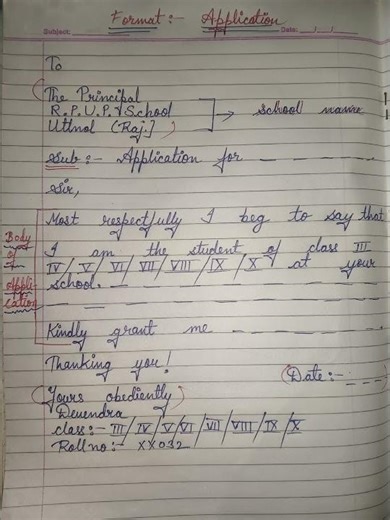 Format:- Application
Subject: Date: / /
To
The Principal
R.P.U.P.S School → School name
Uttnol (Raj.)
Sub:- Application for
Sir,
Most respectfully I beg to say that
I am the student of class III
IV / V / VI / VII / VIII / IX / X at your
school.
Body of Application
Kindly grant me
Thanking you!
Date:-
Yours obediently
Devendra
class:- III / IV / V / VI / VII / VIII / IX / X
Roll no:- XX032